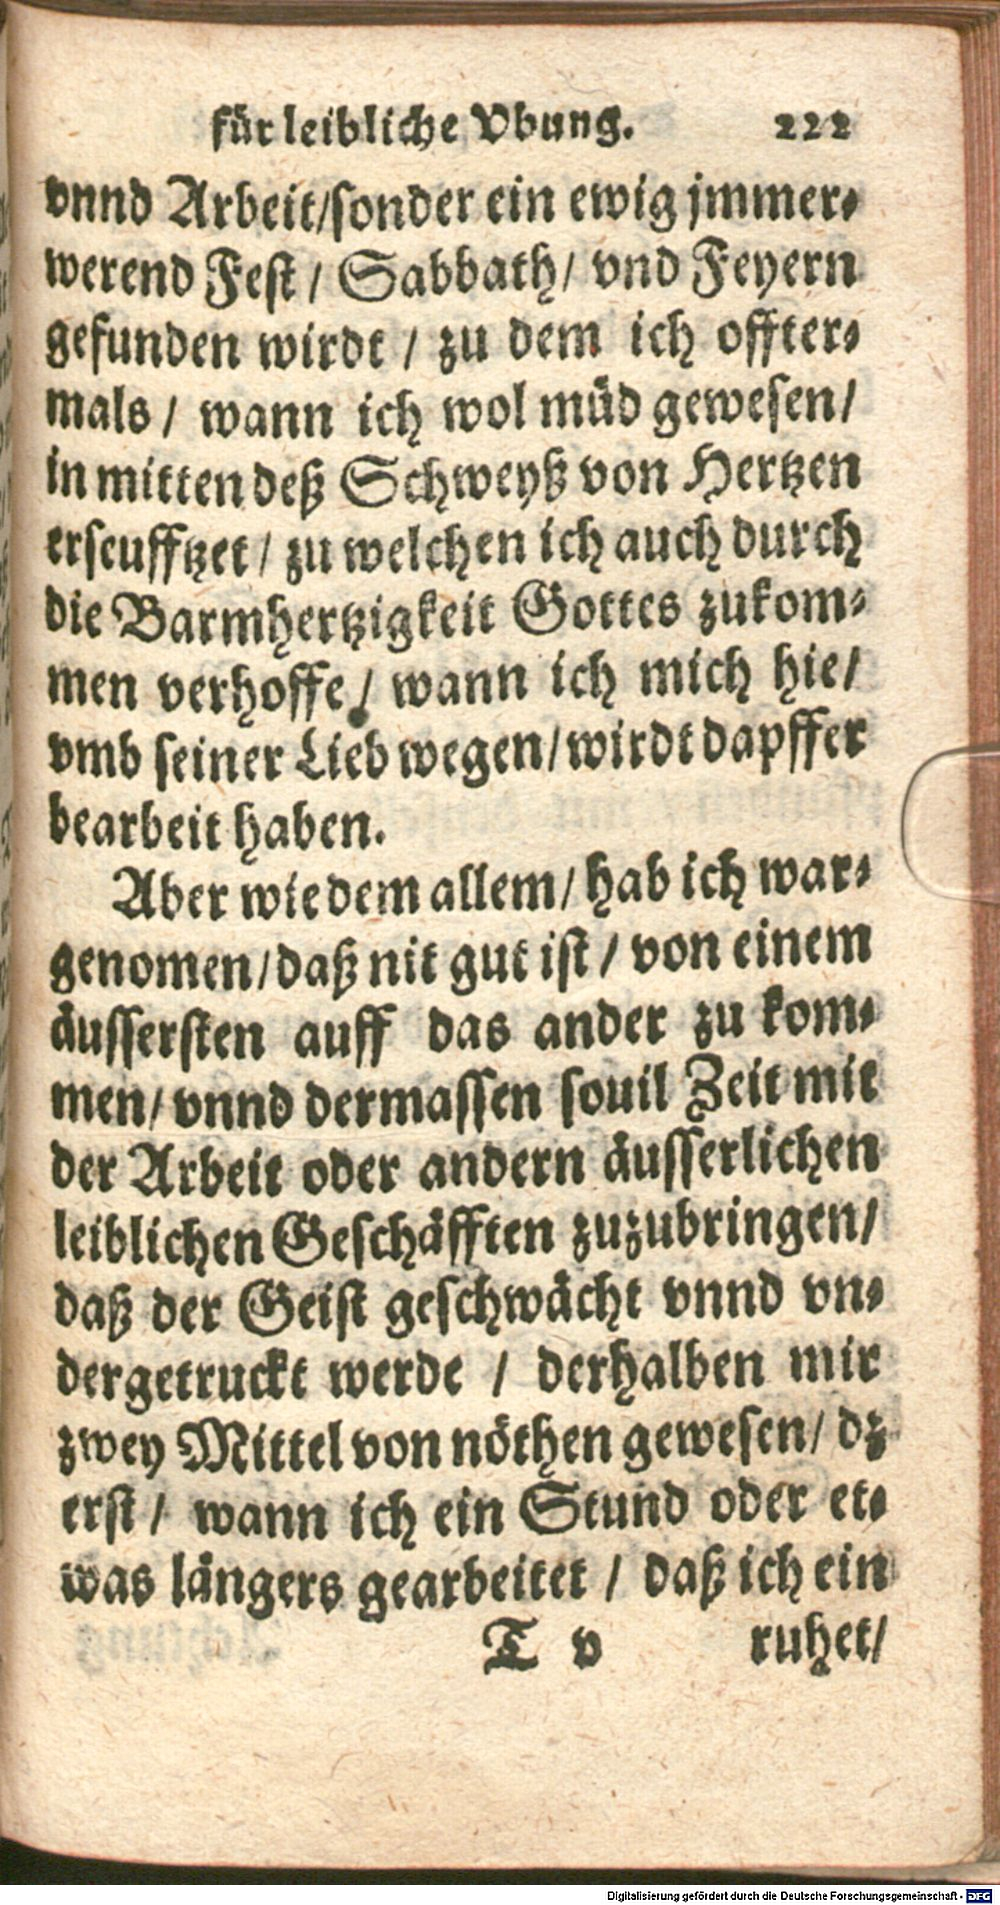 für leibliche Vbung. 222
vnnd Arbeit/sonder ein ewig jmmer-
werend Fest / Sabbath/ vnd Feyern
gefunden wirdt / zu dem ich offter-
mals / wann ich wol müd gewesen/
in mitten deß Schweyß von Hertzen
erseufftzet / zu welchen ich auch durch
die Barmhertzigkeit Gottes zukom-
men verhoffe / wann ich mich hie/
vmb seiner Lieb wegen/wirdt dapffer
bearbeit haben.
Aber wie dem allem/ hab ich war-
genomen/daß nit gut ist / von einem
äussersten auff das ander zu kom-
men/ vnnd dermassen souil Zeit mit
der Arbeit oder andern äusserlichen
leiblichen Geschäfften zuzubringen/
daß der Geist geschwächt vnnd vn-
dergetruckt werde / derhalben mir
zwey Mittel von nöthen gewesen/ dz
erst / wann ich ein Stund oder et-
was längers gearbeitet / daß ich ein
T v ruhet/
Digitalisierung gefördert durch die Deutsche Forschungsgemeinschaft - DFG